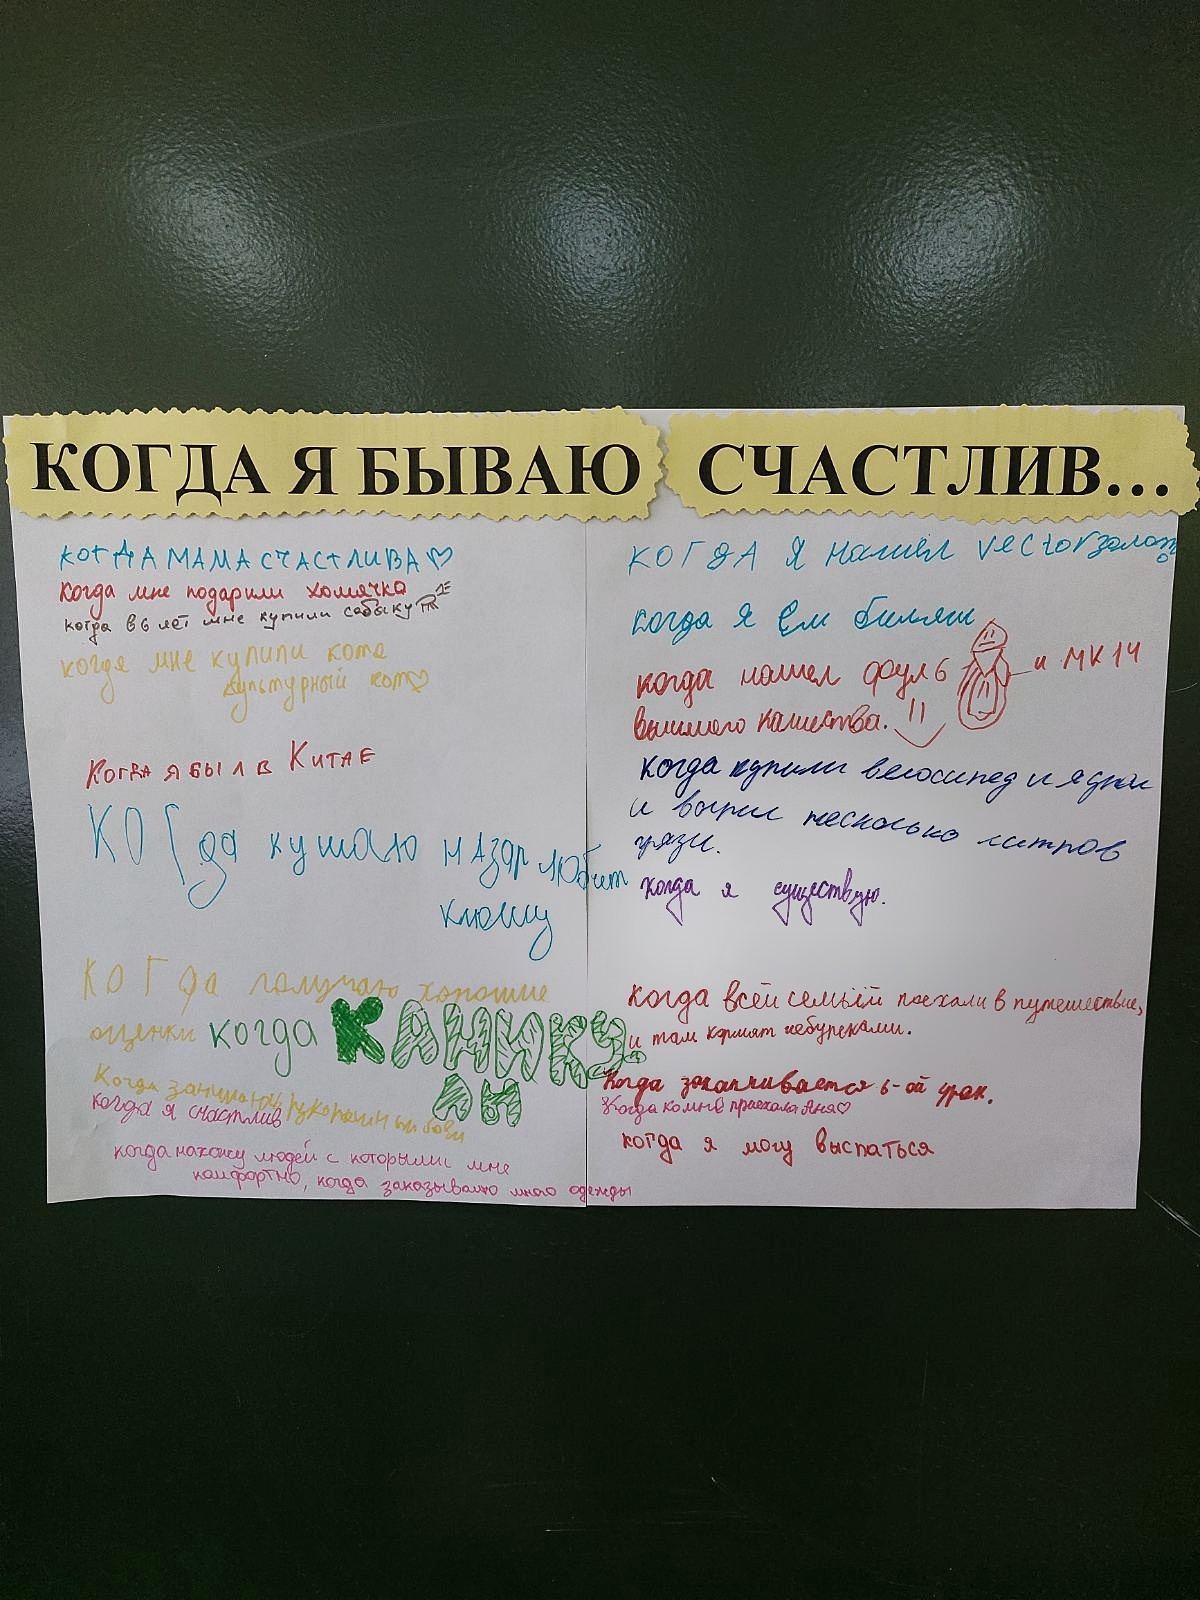 КОГДА Я БЫВАЮ СЧАСТЛИВ...
КОГДА МАМА СЧАСТЛИВА
когда мне подарили хомячка
когда в 6 лет мне купили собаку
когда мне купили кота
культурный кот
Когда я был в Китае
Когда кушаю Назар любит
клюшу
Когда получаю хорошие
оценки
когда КАНИКУ
Л
Когда занимаюсь
когда я счастлив
когда нахожу людей с которыми мне
комфортно, когда заказываю много одежды
КОГДА я нашёл vector
когда я ем биляш
когда нашел фул 6 и МК14
вышмого кашества.
когда купили велосипед и я
и несколько литров
грязи.
когда я существую.
когда всей семьёй поехали в путешествие,
и там кормят чебуреками.
Когда заканчивается 6-ой урок.
Когда ко мне приехала Аня
когда я могу выспаться